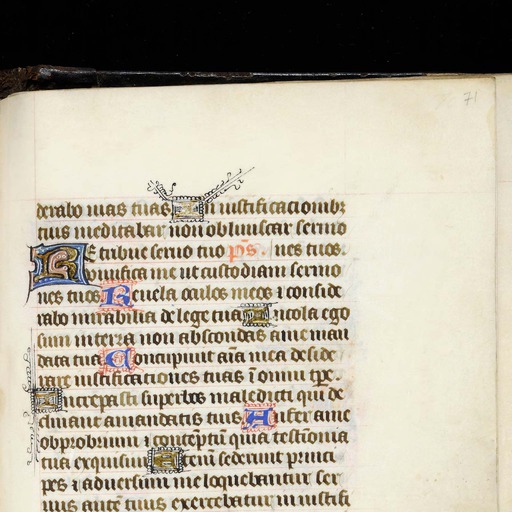 71
derabo uias tuas In iustificacionibȝ
tuis meditabar non obliuiscar sermo
REtribue seruo tuo p̄s. nes tuos.
uiuifica me ut custodiam sermo
nes tuos Reuela oculos meos ⁊ conside
rabo mirabilia de lege tua Incola ego
sum in terra non abscondas a me man
data tua Concupiuit aīa mea deside
rare iustificationes tuas ī omni tp̄e.
Increpasti superbos maledicti qui de
clinant a mandatis tuis Aufer a me
obprobrium ⁊ conteptū quia testīonia
tua exquisiui Etenī sederunt princi
pes ⁊ aduersum me loquebantur ser
uus autē tuus exercebatur in iustifi